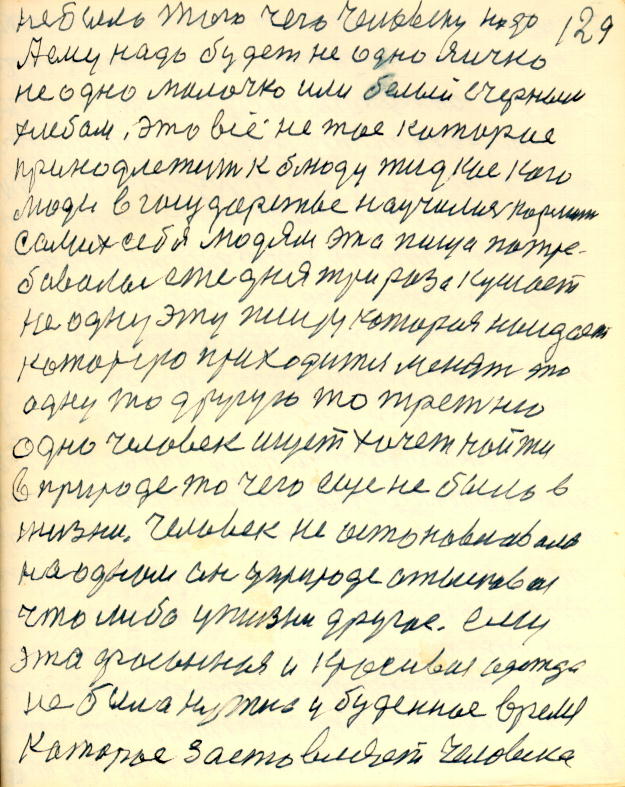 не было того чего человеку надо 129
Аему надо будет не одно яичко
не одно молочко или белый счерным
хлебом, это всё не тое которое
принодлежит к блюду жидкое кого
люди в государстве научились кормит
самих себя людям эта пища потре-
бовалас ежедня три раза кушает
не одну эту пищу которая
которую приходится менят то
одну то другую то третию
одно человек ищет хочет нойти
в природе то чего еще не было в
жизни. Человек не остоновлавался
наодном он уприроде отыскова
что либо ужизни другое. ему
эта и красивая одежда
не была нужна у буденное время
Которое застовляет человека